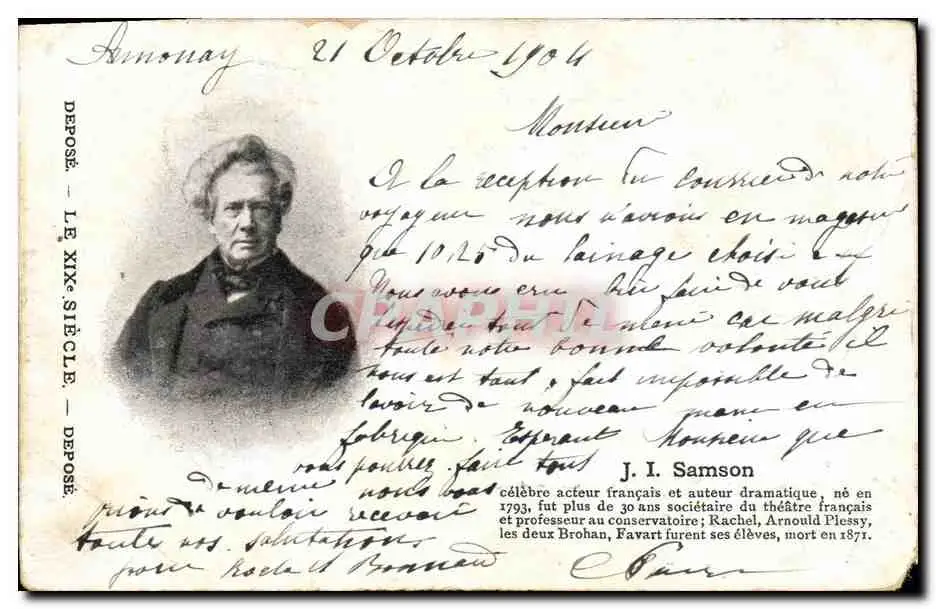 Annonay 21 Octobre 1904
Monsieur
A la reception du courrier de notre
voyageur nous n'avions en magasin
que 10,25 du lainage choisi
Nous avons cru bien faire de vous
l'expedier tout de meme car malgré
toute notre bonne volonté il
nous est tout à fait impossible de
l'avoir de nouveau meme en
fabrique. Esperant Monsieur que
vous pourrez faire tout
de meme nous vous
prions de vouloir recevoir
toutes nos salutations
pour
J. I. Samson
célèbre acteur français et auteur dramatique, né en
1793, fut plus de 30 ans sociétaire du théâtre français
et professeur au conservatoire; Rachel, Arnould Plessy,
les deux Brohan, Favart furent ses élèves, mort en 1871.
DEPOSÉ. — LE XIXe. SIÈCLE. — DEPOSÉ.